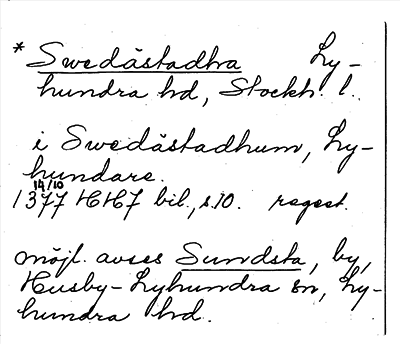 * Swedästadha Ly-
hundra hd, Stockh. l.
i Swedästadhum, Ly-
hundare.
14/10
1377 HH7 bil., s. 10. regest.
möjl. avses Sundsta, by,
Husby-Lyhundra sn, Ly-
hundra hd.